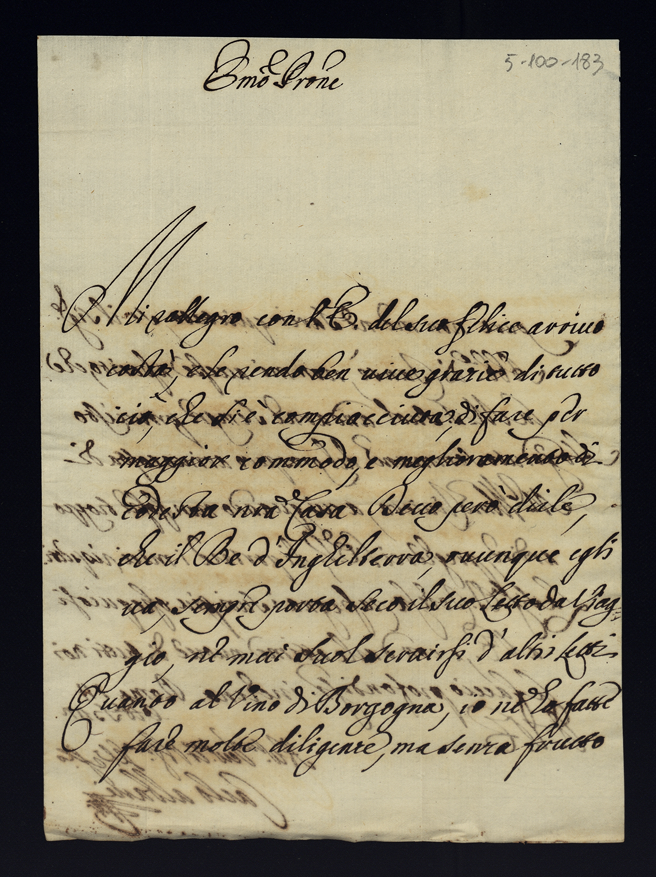 5-100-183
Em̃o Prone
Mi rallegro con l'E. del suo felice arrivo
costà, e le rendo ben vive grazie di tutto
ciò, che si è compiacciuta di fare per
maggior commodo, e miglioramento di
cotesta nrã Casa. Devo però dirle,
che il Re d'Inghilterra, ovunque egli
va, sempre porta seco il suo Letto da Viag=
gio, nè mai suol servirsi d'altri Letti.
Quanto al Vino di Borgogna, io ne ho fatte
fare molte diligenze, ma senza frutto